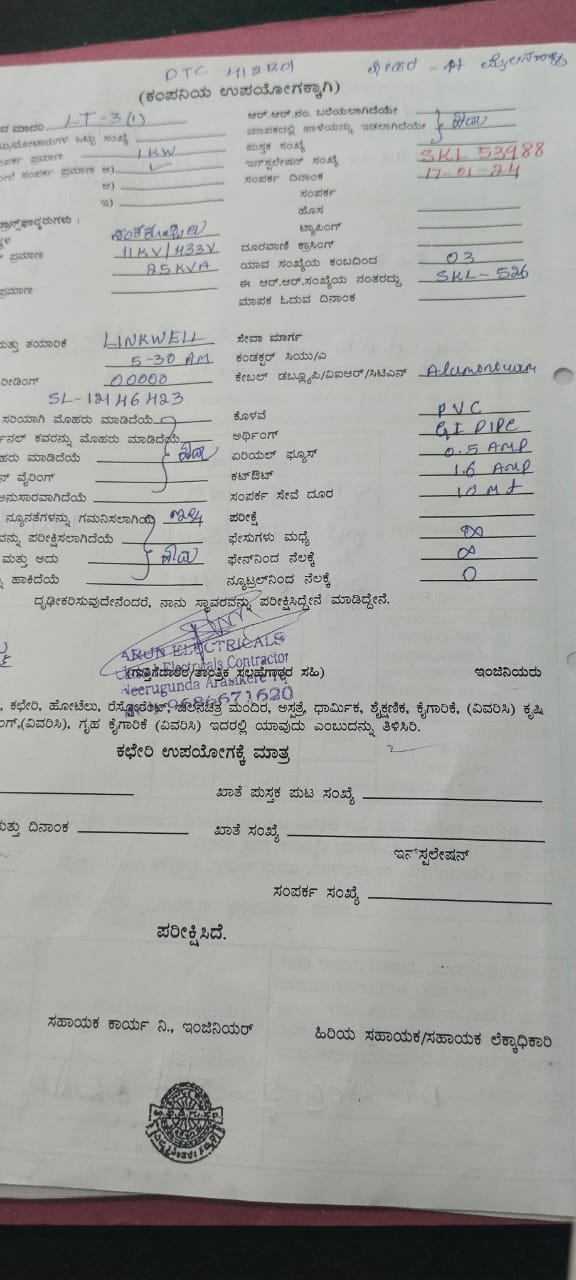 DTC
(ಕಂಪನಿಯ ಉಪಯೋಗಕ್ಕಾಗಿ)
ದ ಮಾದರಿ LT-3(1) ಆರ್.ಆರ್.ನಂ. ಬರೆಯಲಾಗಿದೆಯೇ
ಒಟ್ಟು ಸಂಖ್ಯೆ ಮಾಪಕದಲ್ಲಿ ಹಾಳೆಯನ್ನು ಇಡಲಾಗಿದೆಯೇ ಹೌದು
ಪರ್ಕ ಪ್ರಮಾಣ 1KW ಪುಸ್ತಕ ಸಂಖ್ಯೆ
ಸಂಪರ್ಕ ಪ್ರಮಾಣ ಅ) ಇನ್‌ಸ್ಟಲೇಷನ್ ಸಂಖ್ಯೆ SKL 53988
ಆ) ಸಂಪರ್ಕ ದಿನಾಂಕ 17-01-24
ಇ) ಸಂಪರ್ಕ
ಹೊಸ
ಟ್ಯಾಪಿಂಗ್
ಪ್ರಮಾಣ 11KV/433V ದೂರವಾಣಿ ಕ್ರಾಸಿಂಗ್
25KVA ಯಾವ ಸಂಖ್ಯೆಯ ಕಂಬದಿಂದ 03
ಪ್ರಮಾಣ ಈ ಆರ್.ಆರ್.ಸಂಖ್ಯೆಯ ನಂತರದ್ದು SKL-526
ಮಾಪಕ ಓದುವ ದಿನಾಂಕ
ಮತ್ತು ತಯಾರಿಕೆ LINKWELL ಸೇವಾ ಮಾರ್ಗ
5-30 AM ಕಂಡಕ್ಟರ್ ಸಿಯು/ಎ
ರೀಡಿಂಗ್ 00000 ಕೇಬಲ್ ಡಬ್ಲ್ಯೂಪಿ/ವಿಐಆರ್/ಸಿಟಿಎಸ್
SL-12146423
ಸರಿಯಾಗಿ ಮೊಹರು ಮಾಡಿದೆಯೆ ಕೊಳವೆ PVC
ನಲ್ ಕವರನ್ನು ಮೊಹರು ಮಾಡಿದೆಯೆ ಅರ್ಥಿಂಗ್ GI PIPE
ಹರು ಮಾಡಿದೆಯೆ ಹೌದು ಏರಿಯಲ್ ಫ್ಯೂಸ್ 0.5 AMP
ನ್ ವೈರಿಂಗ್ ಕಟ್‌ಔಟ್ 1.6 AMP
ಅನುಸಾರವಾಗಿದೆಯೆ ಸಂಪರ್ಕ ಸೇವೆ ದೂರ 10 Mt
ನ್ಯೂನತೆಗಳನ್ನು ಗಮನಿಸಲಾಗಿದೆ ಇಲ್ಲ ಪರೀಕ್ಷೆ
ವನ್ನು ಪರೀಕ್ಷಿಸಲಾಗಿದೆಯೆ ಫೇಸುಗಳು ಮಧ್ಯೆ ∞
ಮತ್ತು ಅದು ಹೌದು ಫೇಸ್‌ನಿಂದ ನೆಲಕ್ಕೆ ∞
ಹಾಕಿದೆಯೆ ನ್ಯೂಟ್ರಲ್‌ನಿಂದ ನೆಲಕ್ಕೆ 0
ದೃಢೀಕರಿಸುವುದೇನೆಂದರೆ, ನಾನು ಸ್ಥಾವರವನ್ನು ಪರೀಕ್ಷಿಸಿದ್ದೇನೆ ಮಾಡಿದ್ದೇನೆ.
ARUN ELECTRICALS
Electricals Contractor
(ಗುತ್ತಿಗೆದಾರರ/ತಾಂತ್ರಿಕ ಸಲಹೆಗಾರರ ಸಹಿ) ಇಂಜಿನಿಯರು
Neerugunda Arasikere
9686671620
ಕಛೇರಿ, ಹೋಟೆಲು, ರೆಸ್ಟೋರೆಂಟ್, ಚಲನಚಿತ್ರ ಮಂದಿರ, ಆಸ್ಪತ್ರೆ, ಧಾರ್ಮಿಕ, ಶೈಕ್ಷಣಿಕ, ಕೈಗಾರಿಕೆ, (ವಿವರಿಸಿ) ಕೃಷಿ
ಂಗ್,(ವಿವರಿಸಿ), ಗೃಹ ಕೈಗಾರಿಕೆ (ವಿವರಿಸಿ) ಇದರಲ್ಲಿ ಯಾವುದು ಎಂಬುದನ್ನು ತಿಳಿಸಿರಿ.
ಕಛೇರಿ ಉಪಯೋಗಕ್ಕೆ ಮಾತ್ರ
ಖಾತೆ ಪುಸ್ತಕ ಪುಟ ಸಂಖ್ಯೆ
ಮತ್ತು ದಿನಾಂಕ ಖಾತೆ ಸಂಖ್ಯೆ
ಇನ್‌ಸ್ಟಲೇಷನ್
ಸಂಪರ್ಕ ಸಂಖ್ಯೆ
ಪರೀಕ್ಷಿಸಿದೆ.
ಸಹಾಯಕ ಕಾರ್ಯ ನಿ., ಇಂಜಿನಿಯರ್ ಹಿರಿಯ ಸಹಾಯಕ/ಸಹಾಯಕ ಲೆಕ್ಕಾಧಿಕಾರಿ